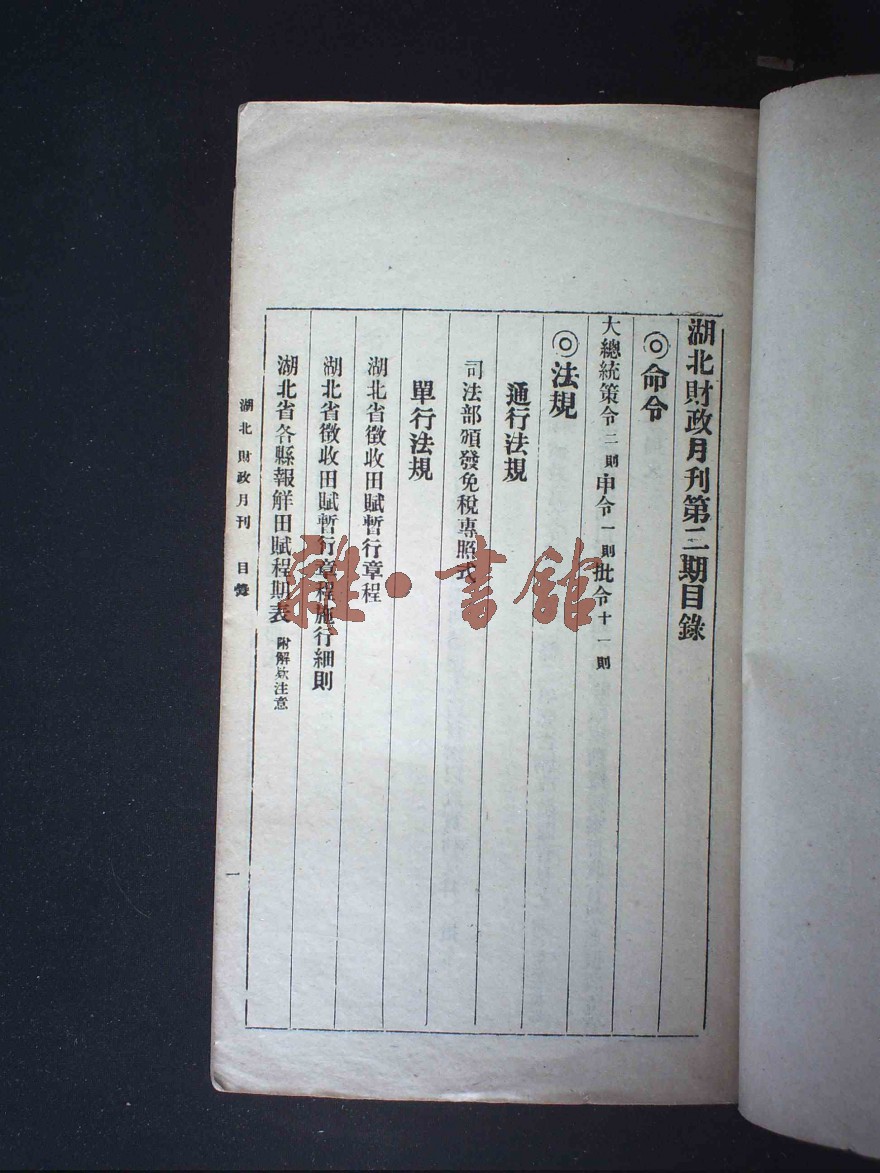 湖北財政月刊第三期目錄
◎命令
大總統策令三則申令一則批令十一則
◎法規
通行法規
司法部頒發免稅專照式
單行法規
湖北省徵收田賦暫行章程
湖北省徵收田賦暫行章程施行細則
湖北省各縣報解田賦程期表 附解欵注意
湖北財政月刊 目錄
一
雜·書館